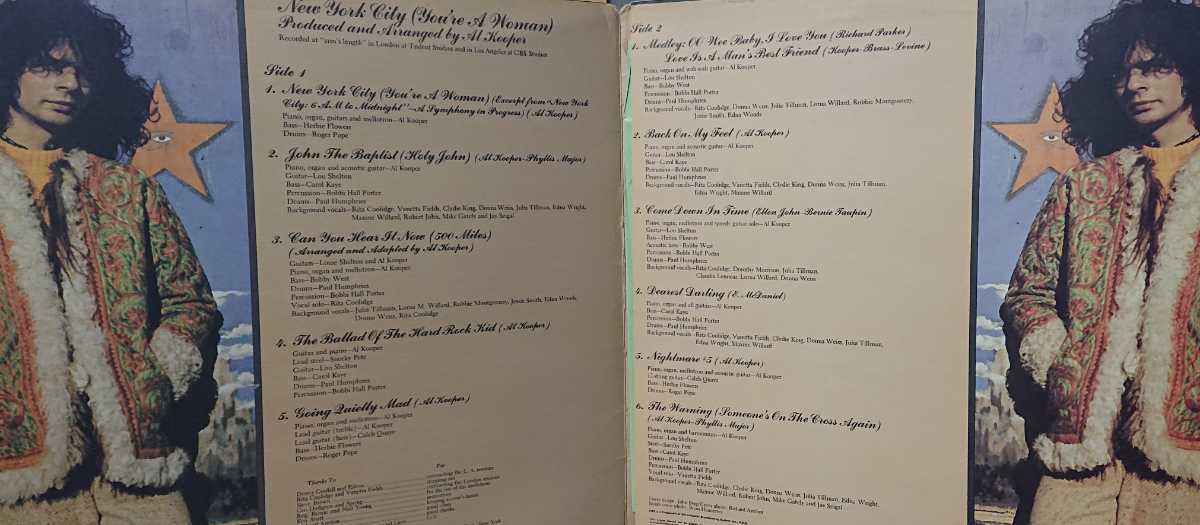 New York City (You're A Woman)
Produced and Arranged by Al Kooper
Recorded at "arm's length" in London at Trident Studios and in Los Angeles at CBS Studios
Side 1
1. New York City (You're A Woman) (Excerpt from "New York
City: 6 A.M. to Midnight"—A Symphony in Progress) (Al Kooper)
Piano, organ, guitars and mellotron—Al Kooper
Bass—Herbie Flowers
Drums—Roger Pope
2. John The Baptist (Holy John) (Al Kooper-Phyllis Major)
Piano, organ and acoustic guitar—Al Kooper
Guitar—Lou Shelton
Bass—Carol Kaye
Percussion—Bobbi Hall Porter
Drums—Paul Humphries
Background vocals—Rita Coolidge, Vanetta Fields, Clydie King, Donna Weiss, Julia Tillman, Edna Wright,
Maxine Willard, Robert John, Mike Gately and Jay Seigal
3. Can You Hear It Now (500 Miles)
(Arranged and Adapted by Al Kooper)
Guitars—Louie Shelton and Al Kooper
Piano, organ and mellotron—Al Kooper
Bass—Bobby West
Drums—Paul Humphries
Percussion—Bobbi Hall Porter
Vocal solo—Rita Coolidge
Background vocals—Julia Tillman, Lorna M. Willard, Robbie Montgomery, Jessie Smith, Edna Woods,
Donna Weiss, Rita Coolidge
4. The Ballad Of The Hard Rock Kid (Al Kooper)
Guitar and piano—Al Kooper
Lead steel—Sneeky Pete
Guitar—Lou Shelton
Bass—Carol Kaye
Drums—Paul Humphries
Percussion—Bobbi Hall Porter
5. Going Quietly Mad (Al Kooper)
Piano, organ and mellotron—Al Kooper
Lead guitar (treble)—Al Kooper
Lead guitar (bass)—Caleb Quaye
Bass—Herbie Flowers
Drums—Roger Pope
Thanks To
For
Rita Coolidge and Vanetta Fields
Side 2
1. Medley: OO Wee Baby, I Love You (Richard Parker)
Love Is A Man's Best Friend (Kooper-Brass-Levine)
Piano, organ and wah-wah guitar—Al Kooper
Guitar—Lou Shelton
Bass—Bobby West
Percussion—Bobbi Hall Porter
Drums—Paul Humphries
Background vocals—Rita Coolidge, Donna Weiss, Julia Tillman, Lorna Willard, Robbie Montgomery,
Jessie Smith, Edna Woods
2. Back On My Feet (Al Kooper)
Piano, organ and acoustic guitar—Al Kooper
Guitar—Lou Shelton
Bass—Carol Kaye
Percussion—Bobbi Hall Porter
Drums—Paul Humphries
Background vocals—Rita Coolidge, Vanetta Fields, Clydie King, Donna Weiss, Julia Tillman,
Edna Wright, Maxine Willard
3. Come Down In Time (Elton John-Bernie Taupin)
Piano, organ, mellotron and guitar solo—Al Kooper
Guitar—Lou Shelton
Bass—Herbie Flowers
Acoustic bass—Bobby West
Percussion—Bobbi Hall Porter
Drums—Paul Humphries
Background vocals—Rita Coolidge, Dorothy Morrison, Julia Tillman,
Claudia Lennear, Lorna Willard, Donna Weiss
4. Dearest Darling (E. McDaniel)
Piano, organ and all guitars—Al Kooper
Bass—Carol Kaye
Percussion—Bobbi Hall Porter
Drums—Paul Humphries
Background vocals—Rita Coolidge, Vanetta Fields, Clydie King, Donna Weiss, Julia Tillman,
Edna Wright, Maxine Willard
5. Nightmare #5 (Al Kooper)
Piano, organ, mellotron and acoustic guitar—Al Kooper
guitar—Caleb Quaye
Bass—Herbie Flowers
Drums—Roger Pope
6. The Warning (Someone's On The Cross Again)
(Al Kooper-Phyllis Major)
Piano, organ and harmonium—Al Kooper
Guitar—Lou Shelton
Steel—Sneeky Pete
Bass—Carol Kaye
Percussion—Bobbi Hall Porter
Drums—Paul Humphries
Vocal solo—Vanetta Fields
Background vocals—Rita Coolidge, Clydie King, Donna Weiss, Julia Tillman, Edna Wright,
Maxine Willard, Robert John, Mike Gately and Jay Seigal